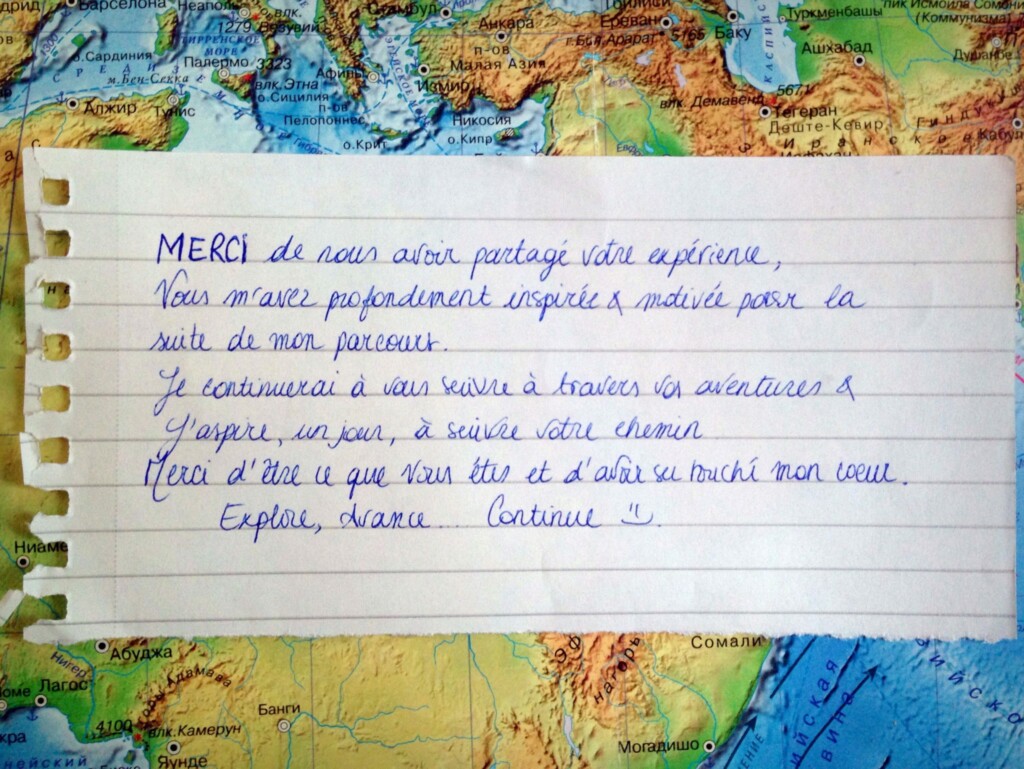 Барселона
Неаполь
влк.
1279 Везувий
Стамбул
Анкара
Ереван
Баку
Туркменбашы
пик Исмоила Сомони
(Коммунизма)
ТИРРЕНСКОЕ
МОРЕ
о.Сардиния
Палермо 3323
м.Бен-Секка
влк.Этна
о.Сицилия
Афины
п-ов
Малая Азия
г.Бол.Арарат 5165
КАСПИЙС
Ашхабад
Душанбе
Измир
п-ов
Пелопоннес
Алжир
Тунис
Никосия
о.Кипр
о.Крит
влк. Демавенд
5671
Тегеран
Деште-Кевир
Кабул
MERCI de nous avoir partagé votre expérience,
Vous m'avez profondement inspirée & motivée pour la
suite de mon parcours.
Je continuerai à vous suivre à travers vos aventures &
J'aspire, un jour, à suivre votre chemin
Merci d'être ce que vous êtes et d'avoir su touché mon coeur.
Explore, Avance... Continue
Ниаме
Абуджа
Нигер
Лагос
Адамава
4100
влк.Камерун
Яунде
Банги
Сомали
Могадишо